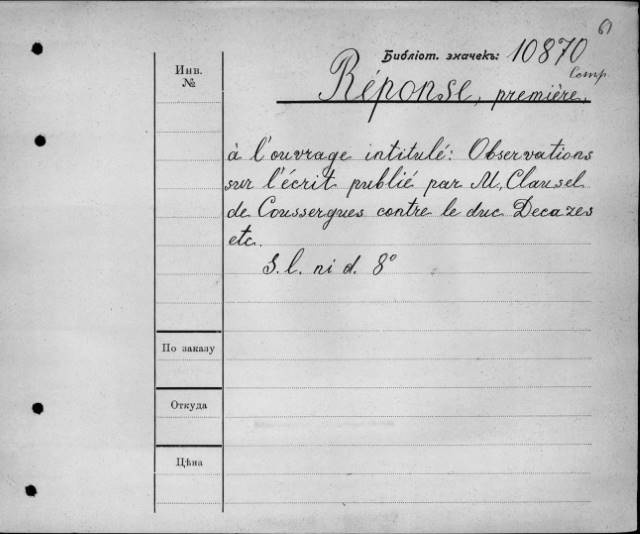 6)
Библіот. значекъ: 10870
Comp
Инв.
№
Réponse, première,
à l'ouvrage intitulé: Observations
sur l'écrit publié par M. Clausel
de Coussergues contre le duc Decazes
etc.
S. l. ni d. 8°
По заказу
Откуда
Цѣна